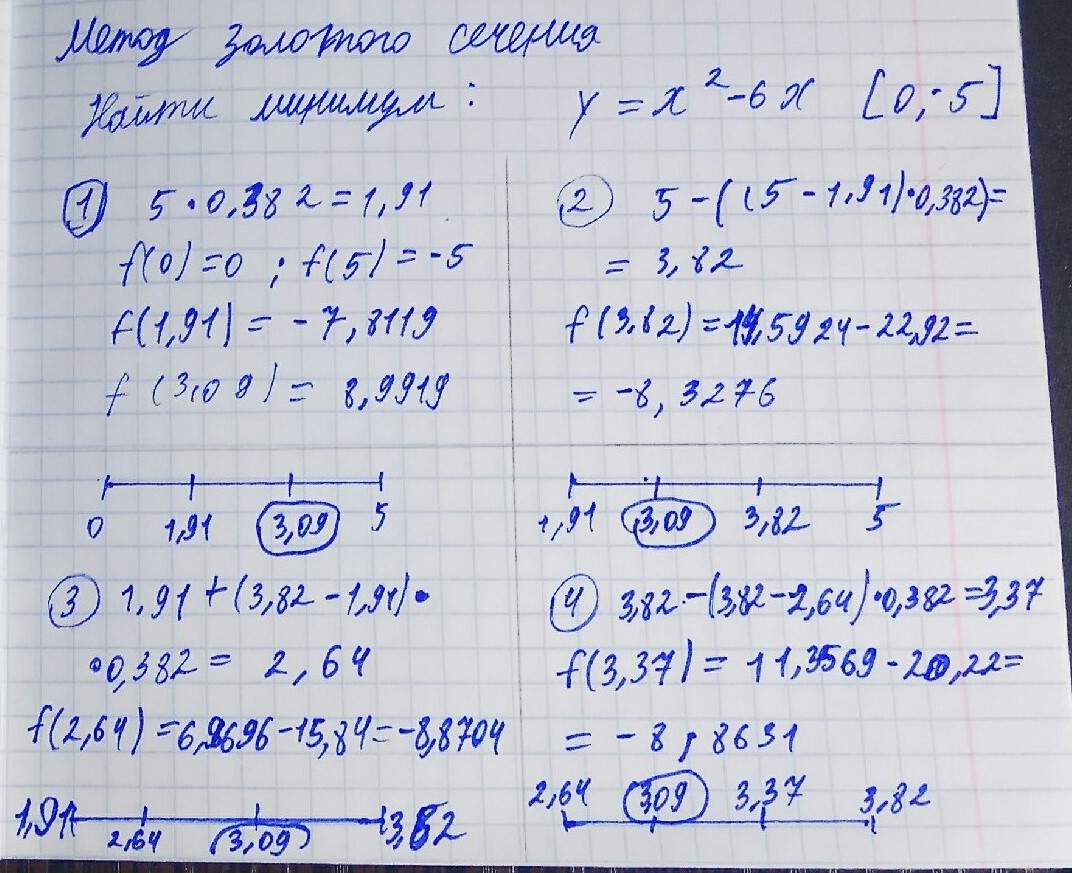 Метод золотого сечения
Найти минимум : y = x² - 6x [0; 5]
① 5 · 0,382 = 1,91
f(0) = 0 ; f(5) = -5
f(1,91) = - 7,8119
f (3,09) = 8,9919
0 1,91 3,09 5
② 5 - ((5 - 1,91) · 0,382) =
= 3,82
f(3,82) = 14,5924 - 22,92 =
= -8,3276
1,91 3,09 3,82 5
③ 1,91 + (3,82 - 1,91) ·
· 0,382 = 2,64
f(2,64) = 6,9696 - 15,84 = -8,8704
1,91 2,64 3,09 3,82
④ 3,82 - (3,82 - 2,64) · 0,382 = 3,37
f(3,37) = 11,3569 - 20,22 =
= - 8,8631
2,64 3,09 3,37 3,82